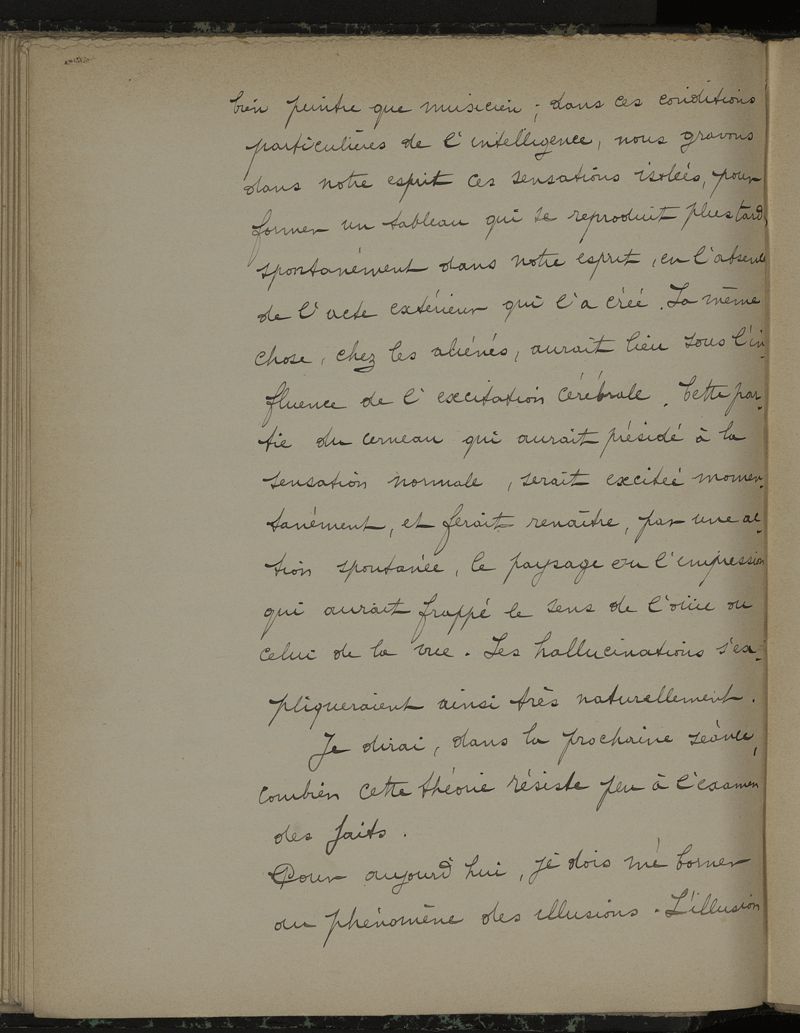 bien peintre que musicien ; dans ces conditions
particulières de l'intelligence, nous gravons
dans notre esprit ces sensations isolées, pour
former un tableau qui se reproduit plus tard,
spontanément dans notre esprit, en l'absence
de l'acte extérieur qui l'a créé. La même
chose, chez les aliénés, aurait lieu sous l'in-
fluence de l'excitation cérébrale. Cette par-
tie du cerveau qui aurait présidé à la
sensation normale, serait excitée momen-
tanément, et ferait renaître, par une ac-
tion spontanée, le paysage ou l'impression
qui aurait frappé le sens de l'ouïe ou
celui de la vue. Les hallucinations s'ex-
pliqueraient ainsi très naturellement.
Je dirai, dans la prochaine séance,
combien cette théorie résiste peu à l'examen
des faits.
Pour aujourd'hui, je dois me borner
au phénomène des illusions. L'illusion